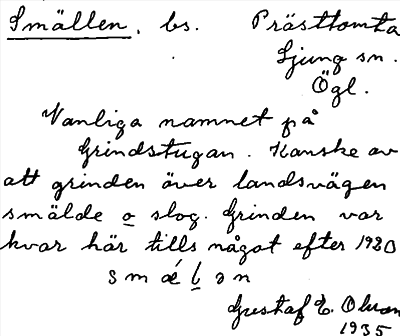 Smällen, bs. Prästtomta
Ljung sn.
Ögl.
Vanliga namnet på
Grindstugan. Kanske av
att grinden över landsvägen
smälde o slog. Grinden var
kvar här tills något efter 1920
smǽlən
Gustaf E. Olsson
1935